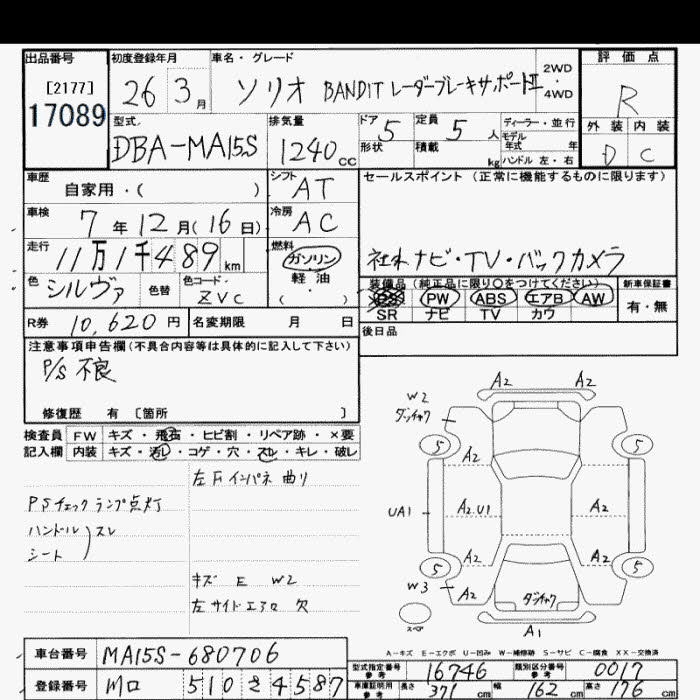 出品番号
[2177]
17089
初度登録年月
26 3月
車名・グレード
ソリオ BANDIT レーダーブレーキサポートII
2WD
・
4WD
評価点
R
外装 内装
D C
型式
DBA-MA15S
排気量
1240cc
ドア 5
形状
定員 5人
積載 kg
ディーラー・並行
モデル
年式 年
ハンドル 左・右
車歴
自家用・( )
シフト
AT
セールスポイント(正常に機能するものに限ります)
社外ナビ・TV・バックカメラ
車検
7年12月(16日)
冷房
AC
走行
11万1千489km
燃料
ガソリン
軽油
( )
色
シルヴァ
色替
色コード
ZVC
装備品(純正品に限り○をつけてください)
PS PW ABS エアB AW
SR ナビ TV カワ
新車保証書
有・無
R券 10,620円
名変期限 月 日
後日品
注意事項申告欄(不具合内容等は具体的に記入して下さい)
P/S 不良
修復歴 有 〔箇所 〕
検査員
記入欄
FW キズ・飛石・ヒビ割・リペア跡・×要
内装 キズ・汚レ・コゲ・穴・スレ・キレ・破レ
左Fインパネ曲り
PSチェックランプ点灯
ハンドル
シート
スレ
キズ E W2
左サイドエアロ 欠
A2 A2
W2
ダンチャク
5 5
A2
UA1 A2.U1 A2
A2 A2
5 5
W3
A2
ダンチャク
スペア
A1
A-キズ E-エクボ U-凹み W-補修跡 S-サビ C-腐食 XX-交換済
車台番号 MA15S-680706
型式指定番号
参考
16746
類別区分番号
参考
0017
登録番号 川口 510 さ 4587
車庫証明用
参考
長さ 371cm 幅 162cm 高さ 176cm